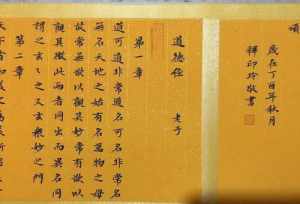 歲在丁酉年秋月
釋印玲敬書
道德經
老子
第一章
道可道非常道名可名非常名
無名天地之始有名萬物之母
故常無欲以觀其妙常有欲以
觀其徼此兩者同出而異名同
謂之玄々之又玄衆妙之門
第二章